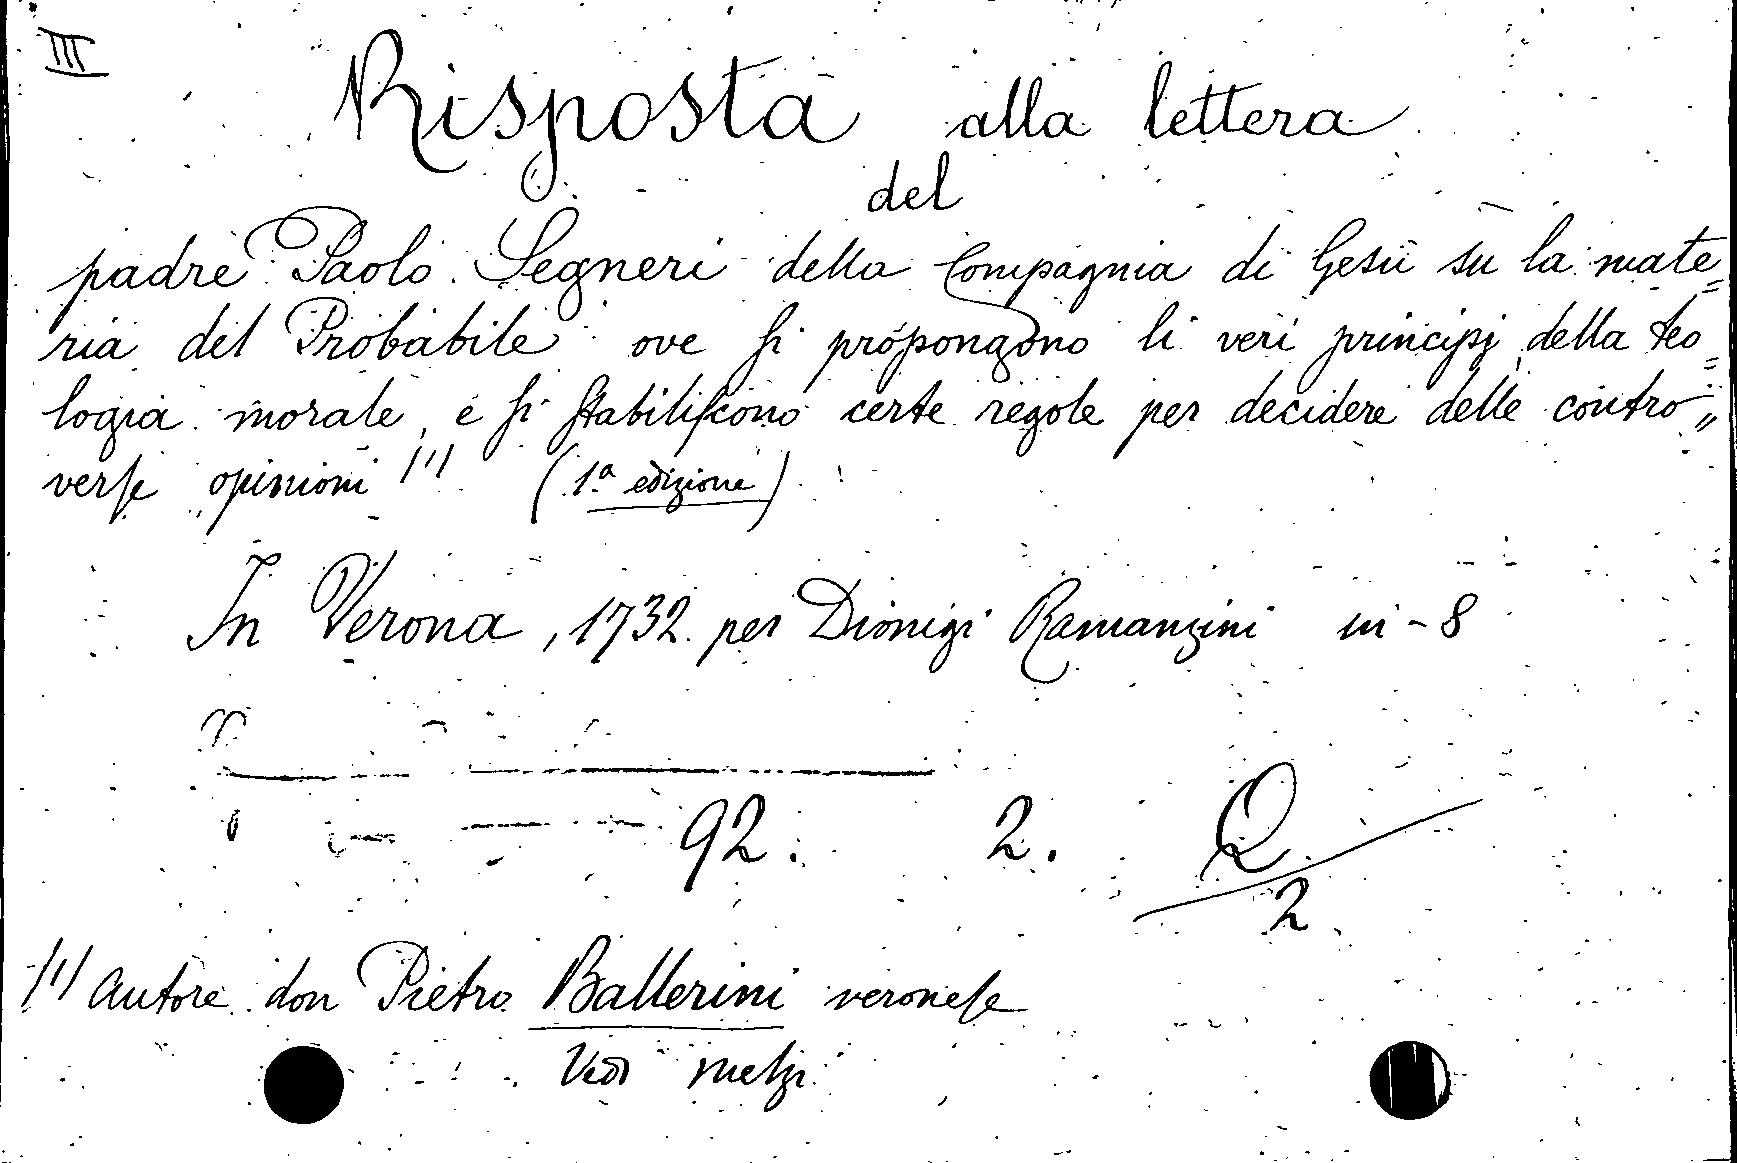 III
Risposta alla lettera
del
padre Paolo Segneri della Compagnia di Gesù su la mate=
ria del Probabile ove ſi propongono li veri principj della teo=
logia morale, e ſi ſtabiliſcono certe regole per decidere delle contro=
verſe opinioni (1) (1ª edizione)
In Verona, 1732. per Dionigi Ramanzini in-8
92. 2. Q
2
(1) Autore don Pietro Ballerini veroneſe
Vedi Melzi